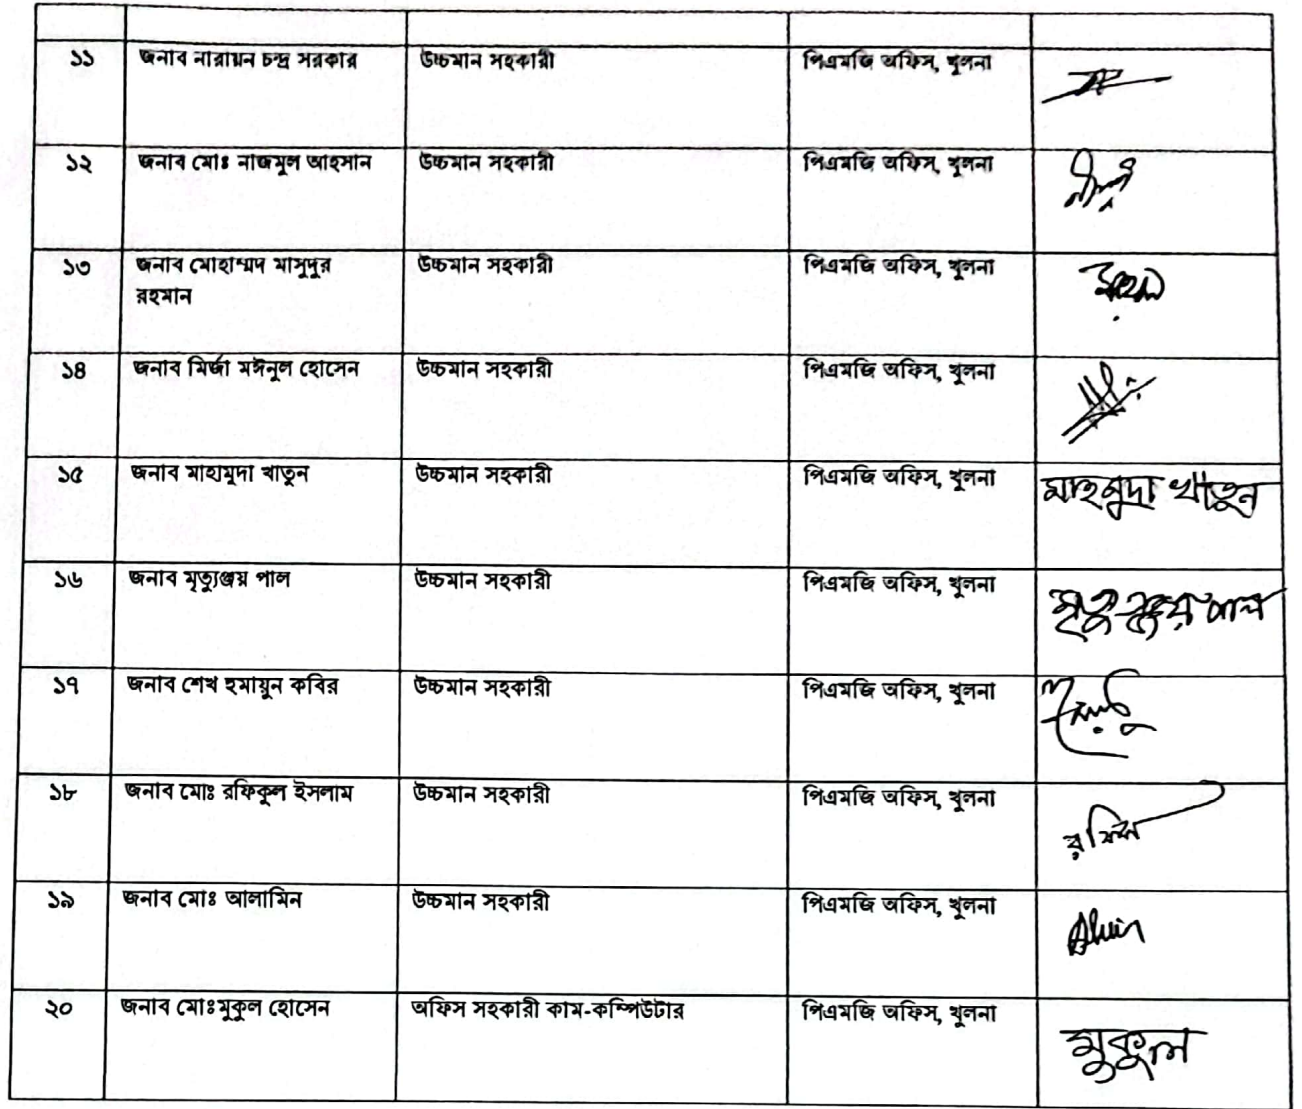 ১১ জনাব নারায়ন চন্দ্র সরকার উচ্চমান সহকারী পিএমজি অফিস, খুলনা
১২ জনাব মোঃ নাজমুল আহসান উচ্চমান সহকারী পিএমজি অফিস, খুলনা
১৩ জনাব মোহাম্মদ মাসুদুর উচ্চমান সহকারী পিএমজি অফিস, খুলনা
রহমান
১৪ জনাব মির্জা মঈনুল হোসেন উচ্চমান সহকারী পিএমজি অফিস, খুলনা
১৫ জনাব মাহামুদা খাতুন উচ্চমান সহকারী পিএমজি অফিস, খুলনা মাহমুদা খাতুন
১৬ জনাব মৃত্যুঞ্জয় পাল উচ্চমান সহকারী পিএমজি অফিস, খুলনা মৃত্যুঞ্জয় পাল
১৭ জনাব শেখ হুমায়ুন কবির উচ্চমান সহকারী পিএমজি অফিস, খুলনা
১৮ জনাব মোঃ রফিকুল ইসলাম উচ্চমান সহকারী পিএমজি অফিস, খুলনা
১৯ জনাব মোঃ আলামিন উচ্চমান সহকারী পিএমজি অফিস, খুলনা
২০ জনাব মোঃমুকুল হোসেন অফিস সহকারী কাম-কম্পিউটার পিএমজি অফিস, খুলনা মুকুল